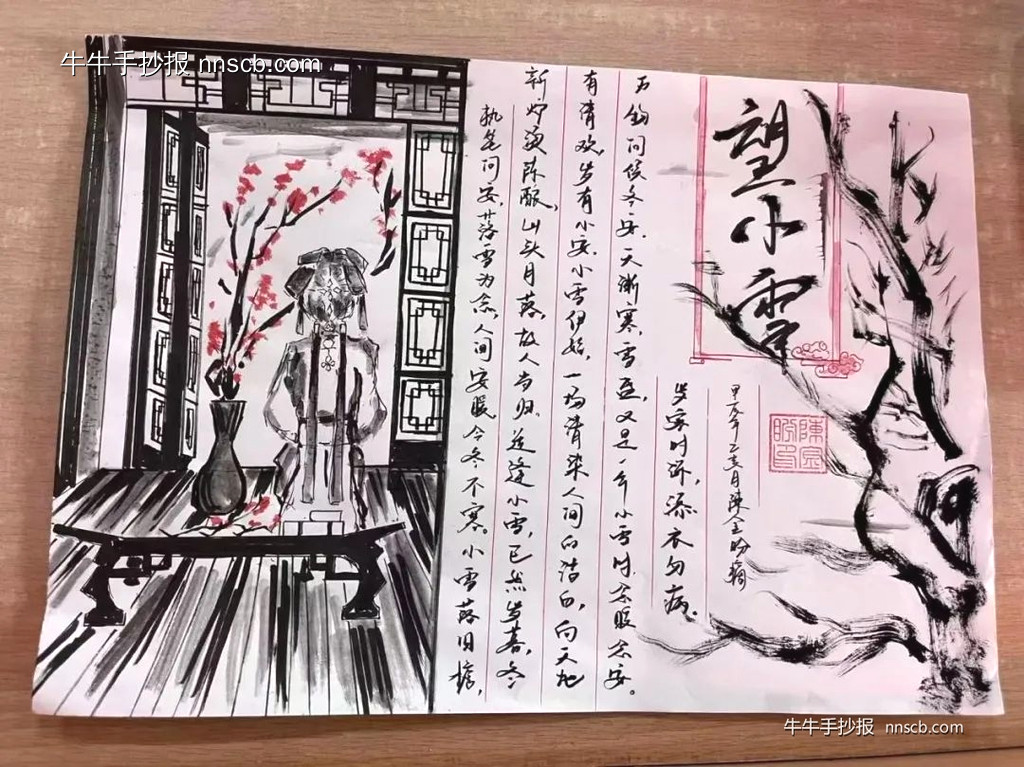 牛牛手抄报 nnscb.com
望小雪
甲辰年乙亥月陈金盼摘
陈金盼印
岁寒时添,添衣勿病。
问候冬安.天渐寒,雪至,又是一年小雪时.冬暖冬安。
有清欢.岁有小安.小雪伊始,一场清染人间白洁白,向天地
新炉滚陈酿,山头月落故人当归.迢迢小雪,已然岁暮,冬
执笔问安.落雪为念.人间安暖今冬不寒.小雪落旧檐,
牛牛手抄报 nnscb.com